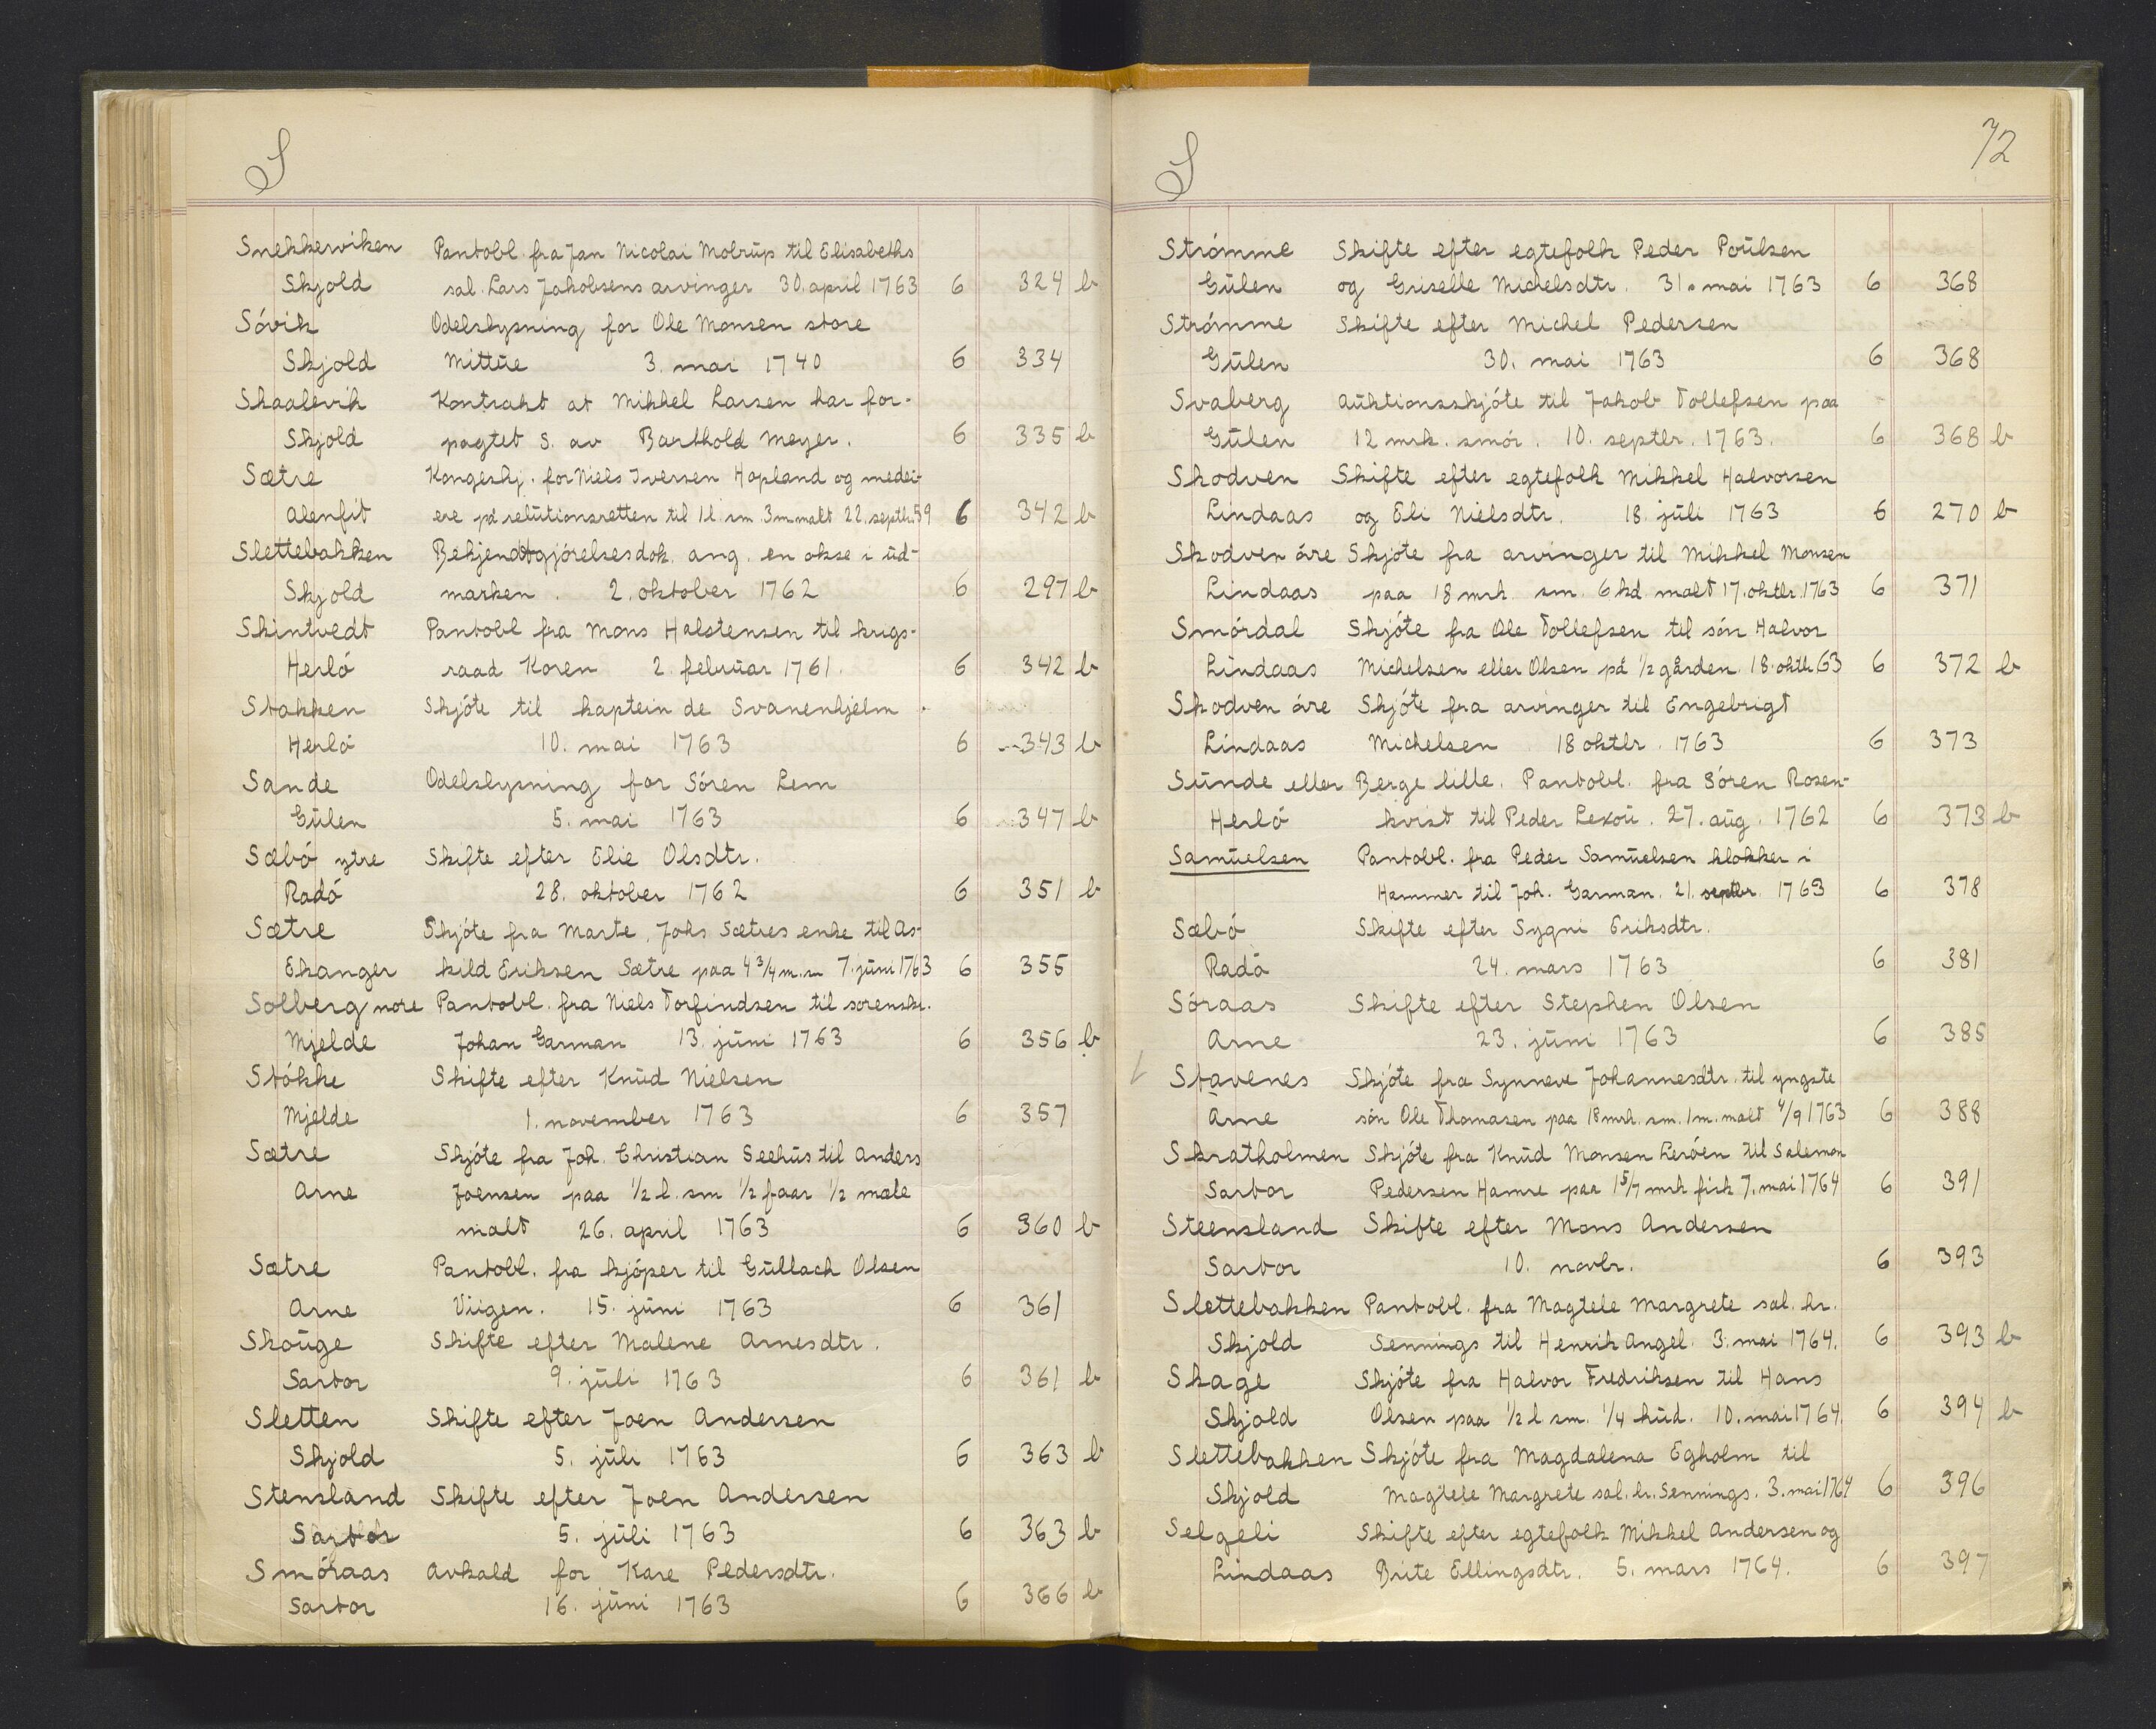 S
Snekkerviken Pantobl. fra Jan Nicolai Molrup til Elisabeths
Skjold sal. Lars Jakobsens arvinger 30. april 1763 6 324 b
Søvik Odelslysning for Ole Monsen store
Skjold Mittue 3. mai 1740 6 334
Skaalevik Kontrakt at Mikkel Larsen har for-
Skjold pagtet S. av Barthold Meyer. 6 335 b
Sætre Kongeskj. for Niels Iversen Hopland og medei-
Alenfit ere på relutionsretten til 1 l. sm. 3 m malt 22. septbr. 59 6 342 b
Slettebakken Bekjendtgjørelsesdok. ang. en okse i ud-
Skjold marken. 2. oktober 1762 6 297 b
Skintvedt Pantobl fra Mons Halstensen til krigs-
Herlø raad Koren 2. februar 1761. 6 342 b
Stokken Skjøte til kaptein de Svanenhjelm.
Herlø 10. mai 1763 6 343 b
Sande Odelslysning for Søren Lem
Gulen 5. mai 1763 6 347 b
Sæbø ytre Skifte efter Elie Olsdtr.
Radø 28. oktober 1762 6 351 b
Sætre Skjøte fra Marte, Johs Sætres enke til As-
Ekanger kild Eriksen Sætre paa 4 3/4 m. sm 7. juni 1763 6 355
Solberg nore Pantobl. fra Niels Torfindsen til sorenskr.
Mjelde Johan Garman 13. juni 1763 6 356 b
Støkke Skifte efter Knud Nielsen
Mjelde 1. november 1763 6 357
Sætre Skjøte fra Joh. Christian Seehus til Anders
Arne Joensen paa 1/2 l. sm 1/2 faar 1/2 mæle
malt 26. april 1763 6 360 b
Sætre Pantobl. fra kjøper til Gullach Olsen
Arne Viigen. 15. juni 1763 6 361
Skouge Skifte efter Malene Arnesdtr.
Sartor 9. juli 1763 6 361 b
Sletten Skifte efter Joen Andersen
Skjold 5. juli 1763 6 363 b
Stensland Skifte efter Joen Andersen
Sartor 5. juli 1763 6 363 b
Smøraas Avkald for Kare Pedersdtr.
Sartor 16. juni 1763 6 366 b
S 72
Strømme Skifte efter egtefolk Peder Poulsen
Gulen og Griselle Michelsdtr. 31. mai 1763 6 368
Strømme Skifte efter Michel Pedersen
Gulen 30. mai 1763 6 368
Svaberg Auktionsskjøte til Jakob Tollefsen paa
Gulen 12 mrk. smør. 10. septbr. 1763. 6 368 b
Skodven Skifte efter egtefolk Mikkel Halvorsen
Lindaas og Eli Nielsdtr. 18. juli 1763 6 270 b
Skodven øvre Skjøte fra arvinger til Mikkel Monsen
Lindaas paa 18 mrk. sm. 6 kd malt 17. oktbr. 1763 6 371
Smørdal Skjøte fra Ole Tollefsen til søn Halvor
Lindaas Michelsen eller Olsen på 1/2 gården. 18. oktbr 63 6 372 b
Skodven øvre Skjøte fra arvinger til Engebrigt
Lindaas Michelsen 18 oktbr. 1763 6 373
Sunde eller Berge lille. Pantobl. fra Søren Rosen-
Herlø kvist til Peder Lexou. 27. aug. 1762 6 373 b
Samuelsen Pantobl. fra Peder Samuelsen klokker i
Hammer til Joh. Garman. 21. septbr. 1763 6 378
Sæbø Skifte efter Sygni Eriksdtr.
Radø 24. mars 1763 6 381
Søraas Skifte efter Stephen Olsen
Arne 23. juni 1763 6 385
Stavenes Skjøte fra Synneve Johannesdtr. til yngste
Arne søn Ole Thomasen paa 18 mrk. sm. 1 m. malt 4/9 1763 6 388
Skratholmen Skjøte fra Knud Monsen Lerøen til Salemon
Sartor Pedersen Hamre paa 1 5/7 mrk fisk 7. mai 1764 6 391
Steensland Skifte efter Mons Andersen
Sartor 10. novbr. 6 393
Slettebakken Pantobl. fra Magtele Margrete sal. hr.
Skjold Sennings til Henrik Angel. 3. mai 1764. 6 393 b
Skage Skjøte fra Halvor Fredriksen til Hans
Skjold Olsen paa 1/2 l sm. 1/4 hud. 10. mai 1764. 6 394 b
Slettebakken Skjøte fra Magdalena Egholm til
Skjold Magtele Margrete sal. hr. Sennings. 3. mai 1764 6 396
Selgeli Skifte efter egtefolk Mikkel Andersen og
Lindaas Brite Ellingsdtr. 5. mars 1764. 6 397